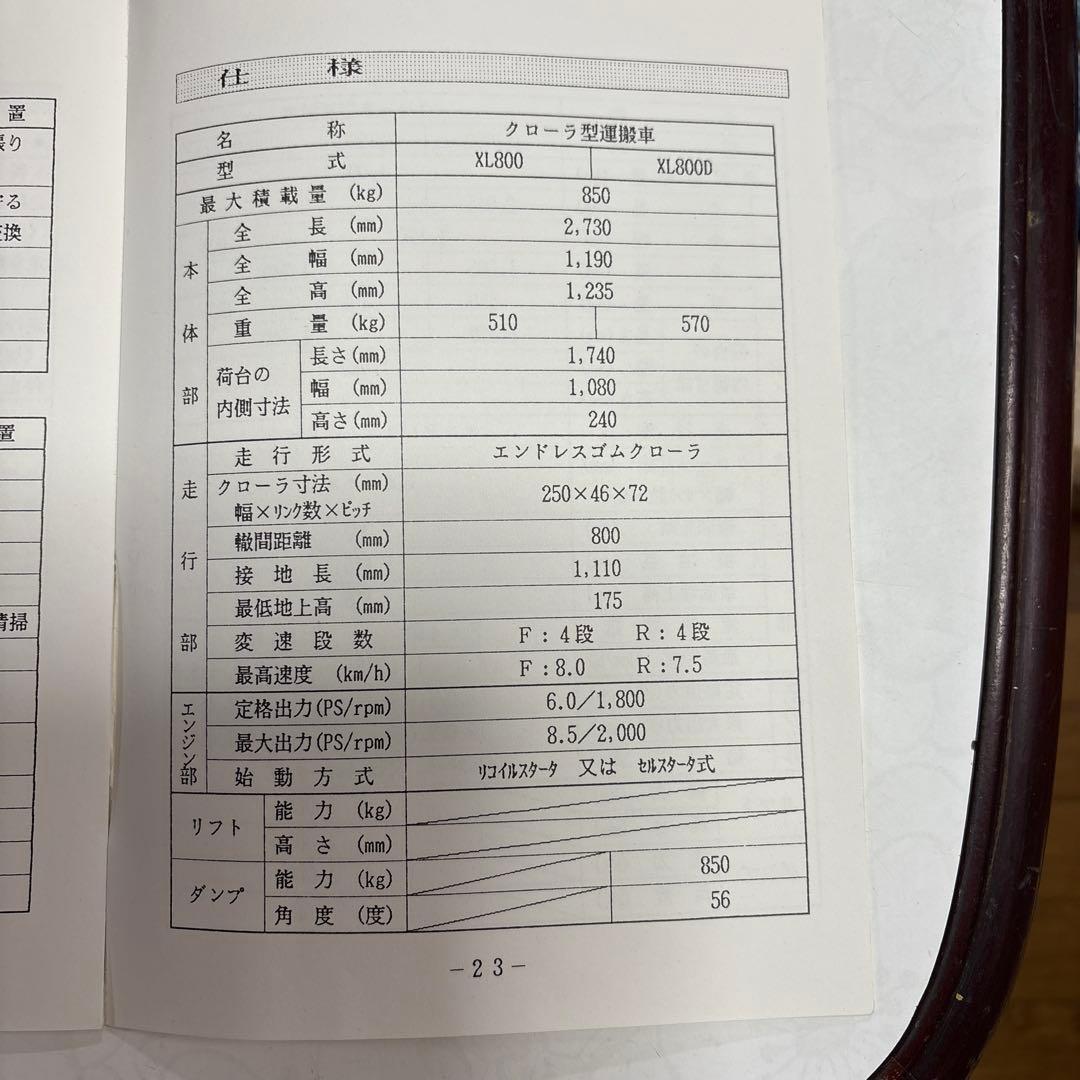 置
張り
守る
交換
置
清掃
仕 様
名 称 クローラ型運搬車
型 式 XL800 XL800D
最大積載量 (kg) 850
本体部
全 長 (mm) 2,730
全 幅 (mm) 1,190
全 高 (mm) 1,235
重 量 (kg) 510 570
荷台の
内側寸法
長さ(mm) 1,740
幅 (mm) 1,080
高さ(mm) 240
走行部
走 行 形 式 エンドレスゴムクローラ
クローラ寸法 (mm)
幅×リンク数×ピッチ
250×46×72
轍間距離 (mm) 800
接 地 長 (mm) 1,110
最低地上高 (mm) 175
変 速 段 数 F:4段 R:4段
最高速度 (km/h) F:8.0 R:7.5
エンジン部
定格出力(PS/rpm) 6.0/1,800
最大出力(PS/rpm) 8.5/2,000
始 動 方 式 リコイルスタータ 又は セルスタータ式
リフト
能 力 (kg)
高 さ (mm)
ダンプ
能 力 (kg) 850
角 度 (度) 56
-23-